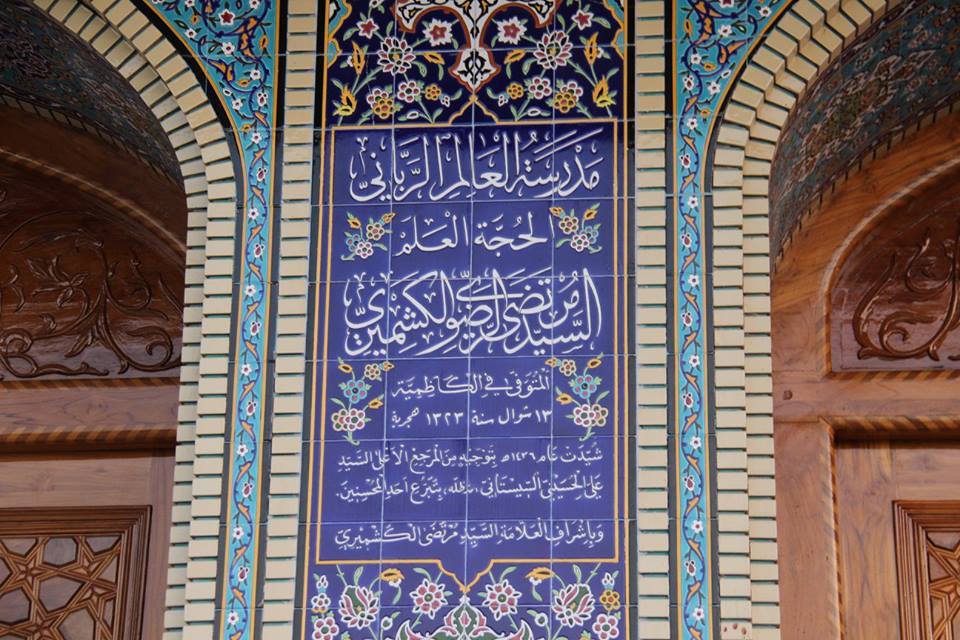 مَدْرَسَةُ العَالِمِ الرَّبَّانِي
الحُجَّة العَلَمْ
السَّيِّد مُرْتَضَى الرَّضَوِي الكَشْمِيرِي
المُتَوَفَّى فِي الكَاظِمِيَّة
١٣ شَوال سنة ١٣٢٣ هجرية
شُيِّدَتْ عَام ١٤٣٦هـ بِتَوْجِيهٍ مِنَ المَرْجِعِ الأَعْلَى السَّيِّدِ
عَلِي الحُسَيْنِي السِّيسْتَانِي، مدظله، بِتَبَرُّعِ أَحَدِ المُحْسِنِينَ.
وَبِإِشْرَافِ العَلَّامَةِ السَّيِّدِ مُرْتَضَى الكَشْمِيرِي